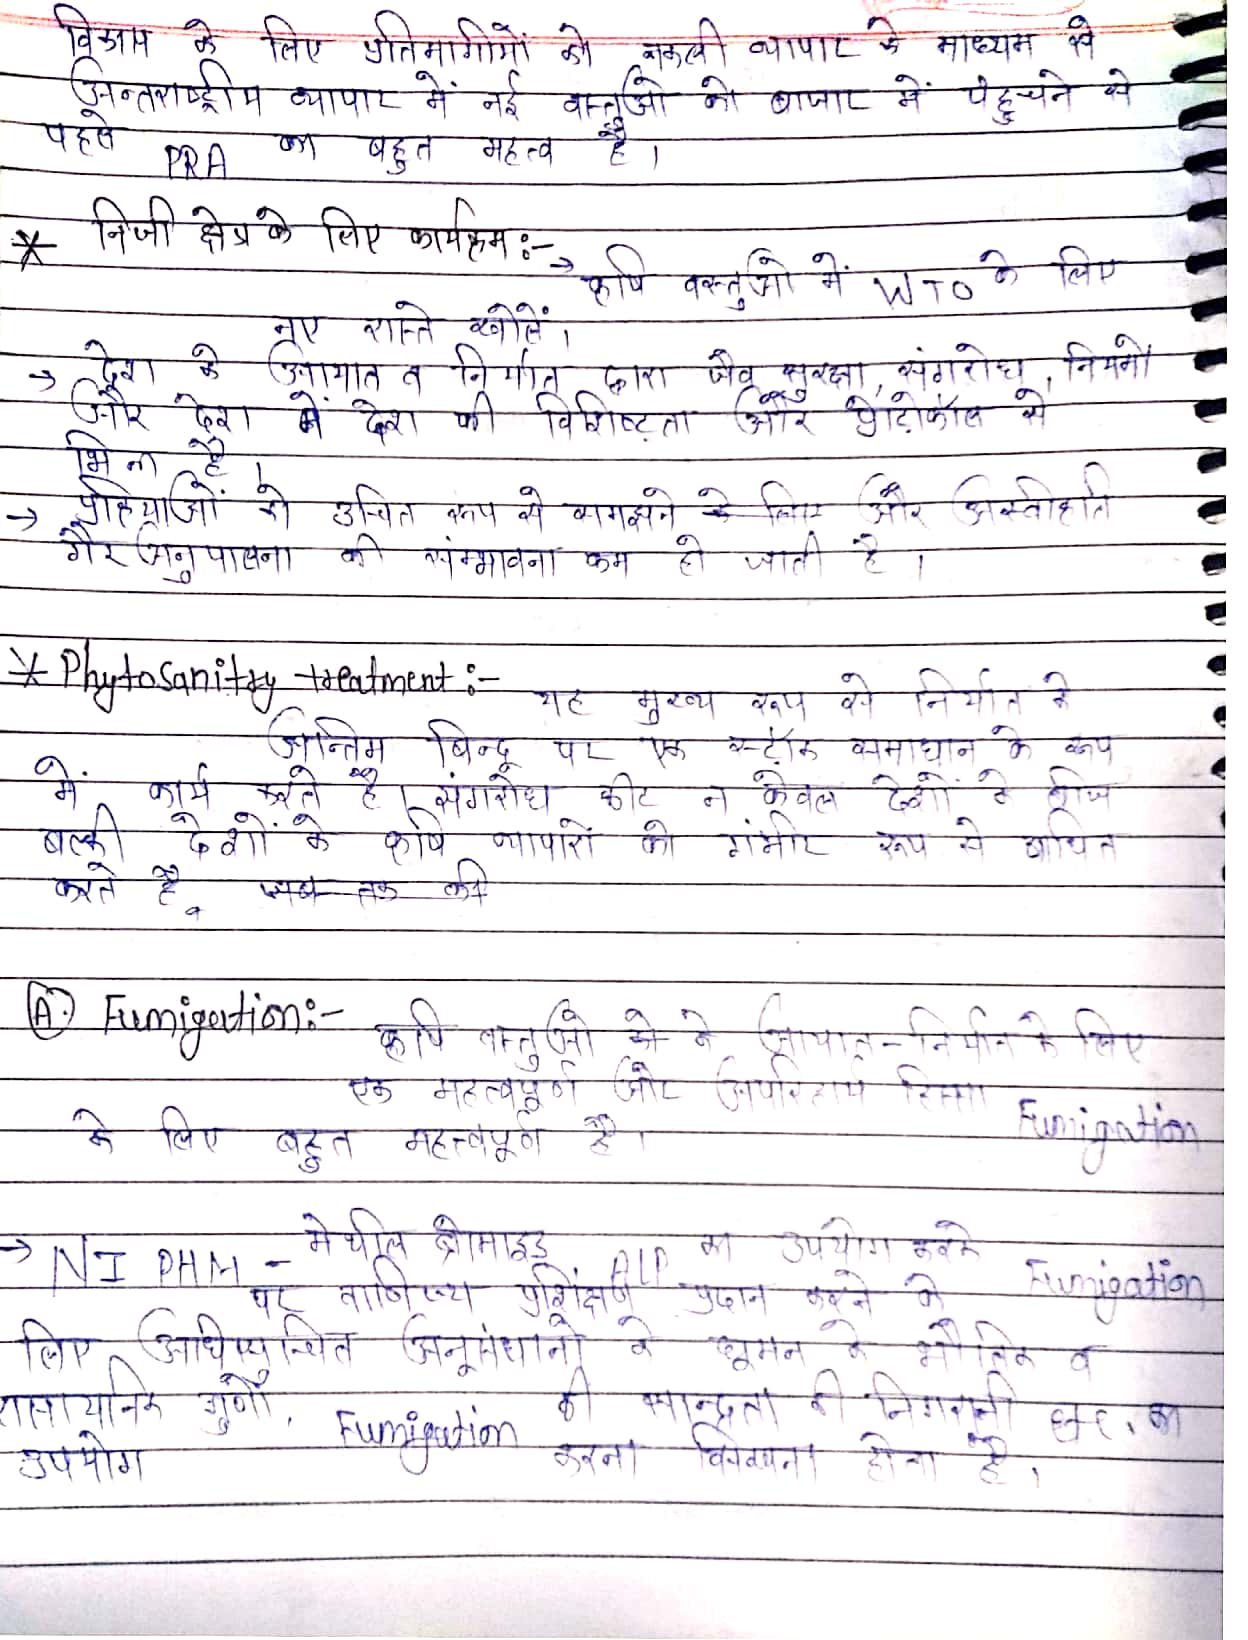 विकास के लिए प्रतिभागीयों को नकली व्यापार के माध्यम से
अन्तराष्ट्रीय व्यापार में नई वस्तुओ को बाजार में पंहुचने से
पहले PRA का बहुत महत्व है।
* निजी क्षेत्र के लिए कार्यक्रम :-
→ कृषि वस्तुओ में WTO के लिए
नए रास्ते खोलें।
→ देश के आयात व निर्यात द्वारा जैव सुरक्षा, संगरोध, नियमों
और देश में देश की विशिष्टता और प्रोटोकॉल से
भिन्न है।
→ प्रक्रियाओं को उचित रूप से समझने के लिए और अस्वीकृति
गैर अनुपालना की संम्भावना कम हो जाती है।
* Phytosanitry treatment :- यह मुख्य रूप से निर्यात के
अन्तिम बिन्दू पर एक स्टॉक समाधान के रूप
में कार्य करते है। संगरोध कीट न केवल देशों के बीज
बल्की देशों के कृषि व्यापारों को गंभीर रूप से बाधित
करते है, जब तक की
(A.) Fumigation :- कृषि वस्तुओ के आयात-निर्यात के लिए
एक महत्वपूर्ण और अपरिहार्य हिस्सा Fumigation
के लिए बहुत महत्वपूर्ण है।
→ NIPHM - मेथील ब्रोमाइड ALP का उपयोग करके Fumigation
पर वाणिज्य प्रशिक्षण प्रदान करने के
लिए अनुसंधानो के धूमन के भौतिक व
रासायनिक गुणों, Fumigation की सान्द्रता की निगरानी etc. का
उपयोग करना सिखाना होता है।